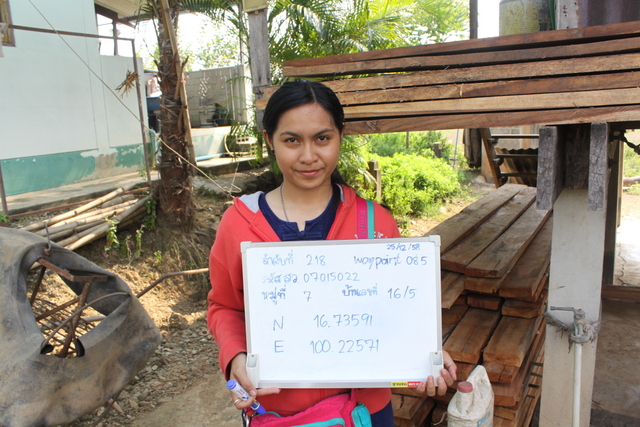 25/12/58
ลำดับที่ 218 waypoint 085
รหัส สว 07015022
หมู่ที่ 7 บ้านเลขที่ 16/5
N 16.73591
E 100.22571